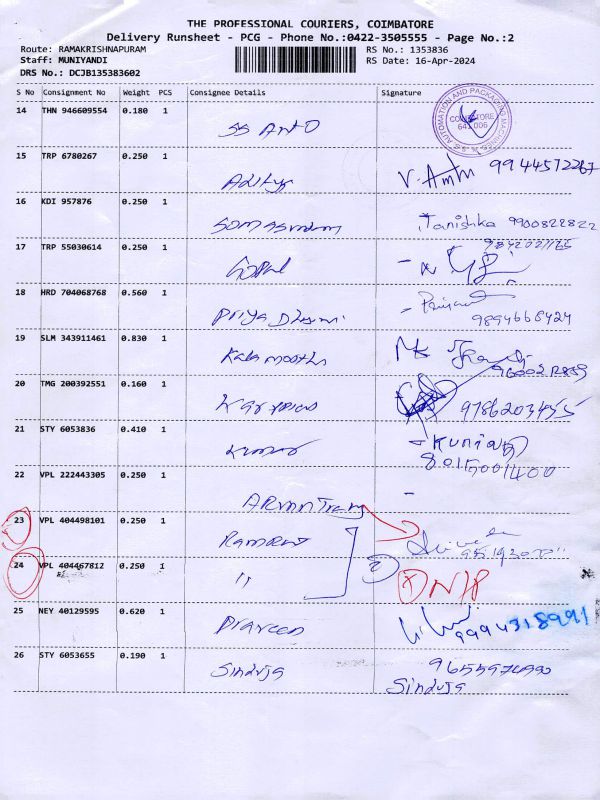 THE PROFESSIONAL COURIERS, COIMBATORE
Delivery Runsheet - PCG - Phone No.:0422-3505555 - Page No.:2
Route: RAMAKRISHNAPURAM
RS No.: 1353836
Staff: MUNIYANDI
RS Date: 16-Apr-2024
DRS No.: DCJB135383602
S No Consignment No Weight PCS Consignee Details Signature
14 THN 946609554 0.180 1 SS Anto
COIMBATORE
641 006
15 TRP 6780267 0.250 1 Aditya 9944572267
16 KDI 957876 0.250 1 Somasundram Tanishka 9900822822
17 TRP 55030614 0.250 1 Gopal
18 HRD 704068768 0.560 1 Priya Dharsini 9894668424
19 SLM 343911461 0.830 1
20 TMG 200392551 0.160 1 9786203455
21 STY 6053836 0.410 1 Kumar 8015001400
22 VPL 222443305 0.250 1 -
23 VPL 404498101 0.250 1
24 VPL 404467812 0.250 1 "
25 NEY 40129595 0.620 1 Praveen 9994318991
26 STY 6053655 0.190 1 Sinduja
Sinduja